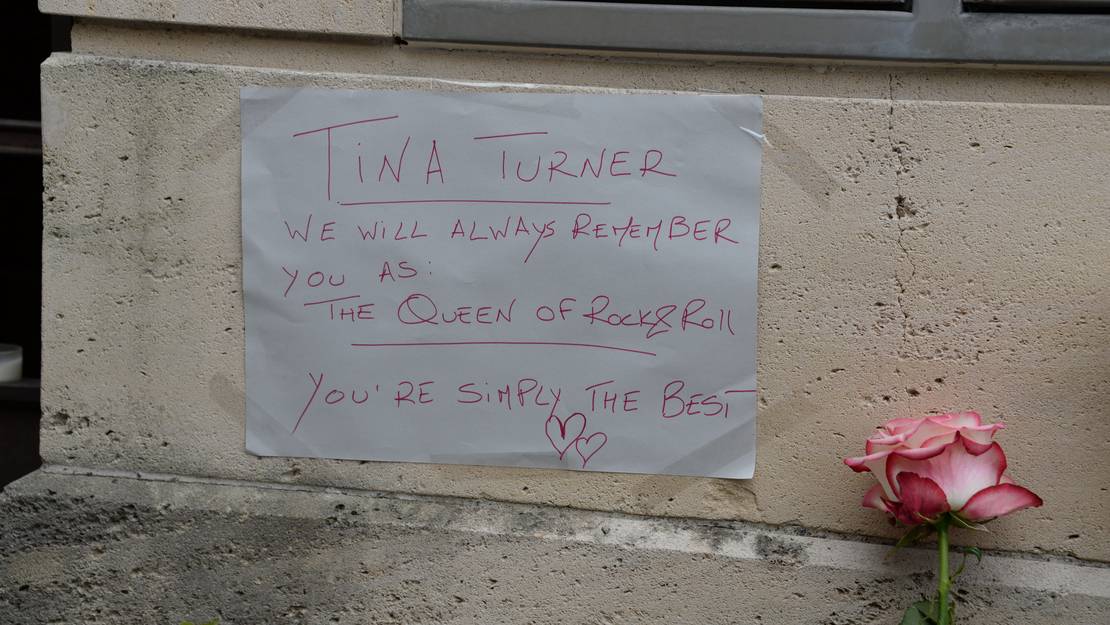 TiNA TURNER
WE WiLL ALWAYS REMEMBER
YOU AS:
THE QUEEN OF ROCK&Roll
YOU'RE SiMPLY THE BEST